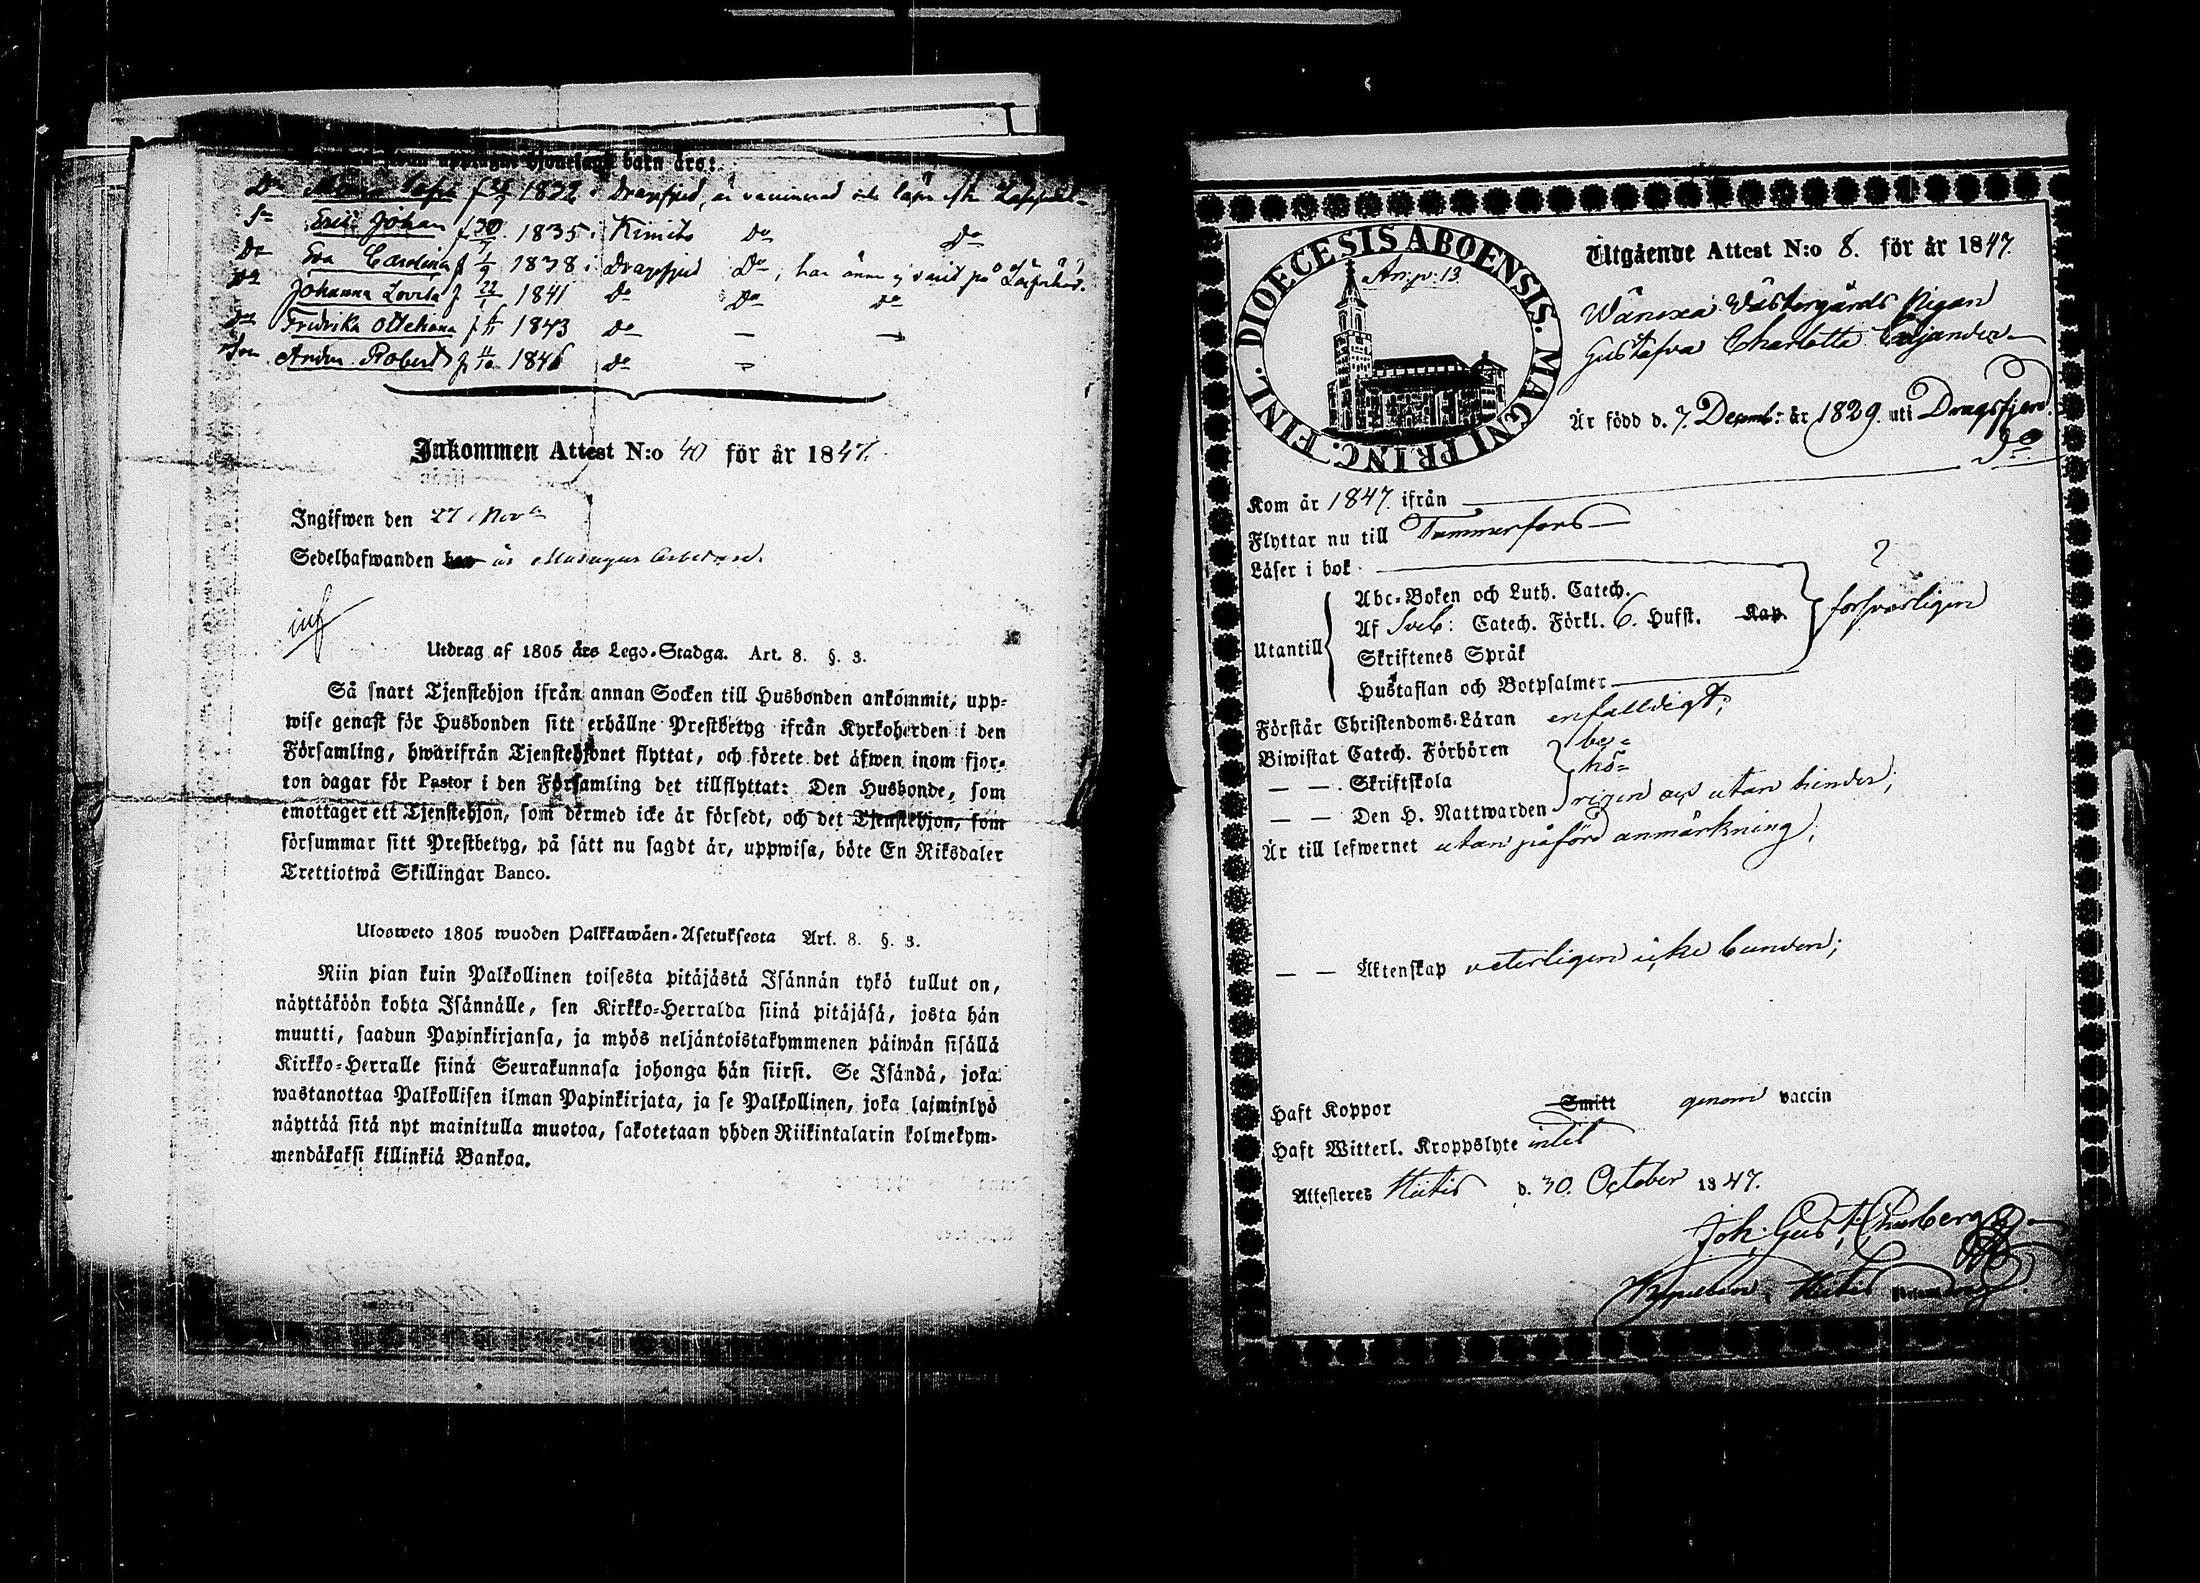 barn äro:
Dr Maria Sofia f 1822 i Dragsfjerd, är vaccinerad och läser
Sn Eric Johan f 20/7 1835 i Kimito Do Do
Dr Eva Carolina f 1/9 1838 i Dragsfjerd Do, har ännu ej varit på Läsförhör.
Dr Johanna Lovisa f 22/1 1841 Do Do Do
Dr Fredrika Ottekana f 1843 do — —
Son Anders Robert f 11/10 1846 do —
Inkommen Attest N:o 40 för år 1847.
Ingifwen den 27 Nov
Sedelhafwanden har är
inf
Utdrag af 1805 års Lego-Stadga. Art. 8. §. 3.
Så snart Tjenstehjon ifrån annan Socken till Husbonden ankommit, upp-
wise genast för Husbonden sitt erhållne Prestbetyg ifrån Kyrkoherden i den
Församling, hwarifrån Tjenstehjonet flyttat, och förete det äfwen inom fjor-
ton dagar för Pastor i den Församling det tillflyttat: Den Husbonde, som
emottager ett Tjenstehjon, som dermed icke är försedt, och det Tjenstehjon, som
försummar sitt Prestbetyg, på sätt nu sagdt är, uppwisa, böte En Riksdaler
Trettiotwå Skillingar Banco.
Ulosweto 1805 wuoden Palkkawäen-Asetuksesta Art. 8. §. 3.
Niin pian kuin Palkollinen toisesta pitäjästä Isännän tykö tullut on,
näyttäköön kohta Isännälle, sen Kirkko-Herralda siinä pitäjäsä, josta hän
muutti, saadun Papinkirjansa, ja myös neljäntoistakymmenen päiwän sisällä
Kirkko-Herralle siinä Seurakunnasa johonga hän siirsi. Se Isändä, joka
wastanottaa Palkollisen ilman Papinkirjata, ja se Palkollinen, joka laiminlyö
näyttää sitä nyt mainitulla muotoa, sakotetaan yhden Riikintalarin kolmekym-
mendäkaksi killinkiä Bankoa.
DIOECESIS ABOENSIS. MAGNI PRINC. FINL.
An: p: 13.
Utgående Attest N:o 8. för år 1847.
Wänoxa Västergårds Pigan
Gustafva Charlotta Cajander
Är född d. 7. Decemb: år 1829. uti Dragsfjerd.
Kom år 1847. ifrån — Do
Flyttar nu till Tammerfors
Läser i bok
Utantill
Abc-Boken och Luth. Catech.
Af Sveb: Catech. Förkl. 6. Hufst. Kap.
Skriftenes Språk
Hustaflan och Botpsalmer
försvarligen
Förstår Christendoms-Läran enfalldigt;
Biwistat Catech. Förhören be-
— — Skriftskola hö-
— — Den H. Nattwarden rigen och utan hinder;
Är till lefwernet utan påförd anmärkning;
— — Äktenskap veterligen icke bunden;
Haft Koppor Smitt genom vaccin
Haft Witterl. Kroppslyte intet
Attesteres Hitis d. 30. October 1847.
Joh. Gust.
Kapellan i Hitis